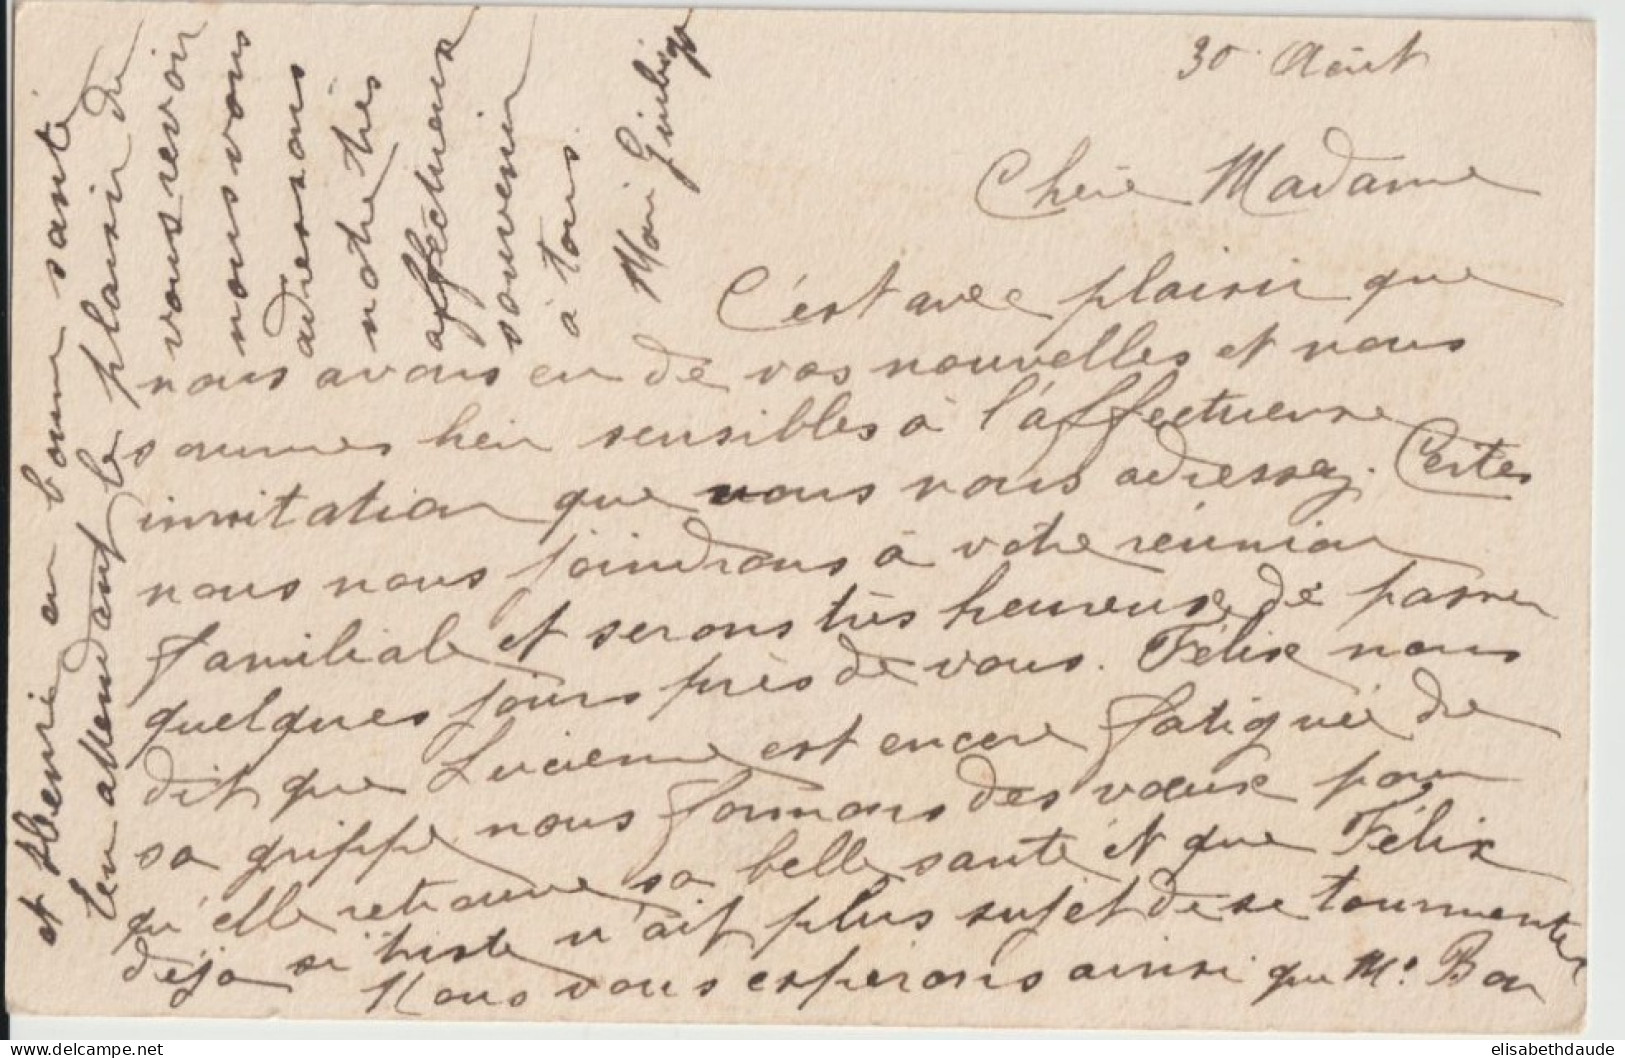 30 Août
Chère Madame
C'est avec plaisir que
nous avons eu de vos nouvelles et nous
sommes bien sensibles à l'affectueuse
invitation que vous nous adressez. Certes
nous nous joindrons à votre réunion
familiale et serons très heureux de passer
quelques jours près de vous. Félix nous
dit que Lucienne est encore fatiguée de
sa grippe nous formons des vœux pour
qu'elle retrouve sa belle santé et que Félix
déjà si triste n'ait plus sujet de se tourmenter
Nous vous espérons ainsi que Mr. Bon
et Henri en bonne santé
En attendant le plaisir de
vous revoir
nous vous
adressons
notre très
affectueux
souvenir
à tous.
delcampe.net
elisabethdaude